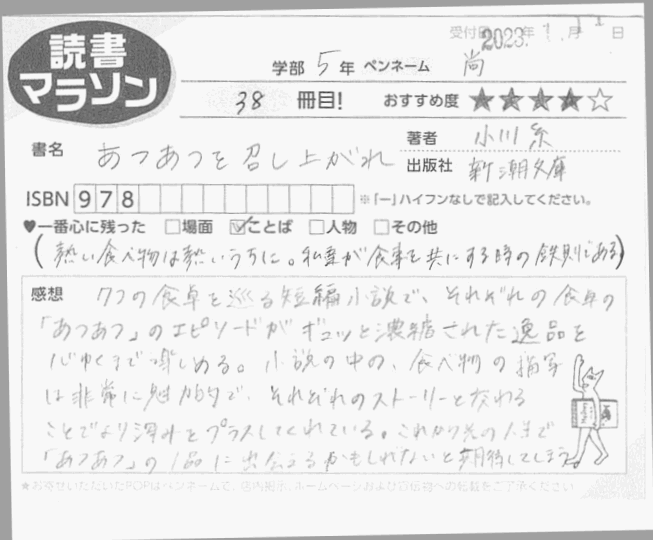 読書
マラソン
受付日 2023. 年 1. 月 11 日
学部 5 年 ペンネーム 尚
38 冊目! おすすめ度 ★★★★☆
書名 あつあつを召し上がれ
著者 小川糸
出版社 新潮文庫
ISBN 978 ※「ー」ハイフンなしで記入してください。
♥一番心に残った □場面 ☑ことば □人物 □その他
(熱い食べ物は熱いうちに。私達が食事を共にする時の鉄則である)
感想 7つの食卓を巡る短編小説で、それぞれの食卓の
「あつあつ」のエピソードがギュッと濃縮された逸品を
心ゆくまで楽しめる。小説の中の、食べ物の描写
は非常に魅力的で、それぞれのストーリーと交わる
ことでより深みをプラスしてくれている。これから先の人生で
「あつあつ」の1品に出会えるかもしれないと期待してしまう。
★お寄せいただいたPOPはペンネームで、店内掲示、ホームページおよび宣伝物への転載をご了承ください